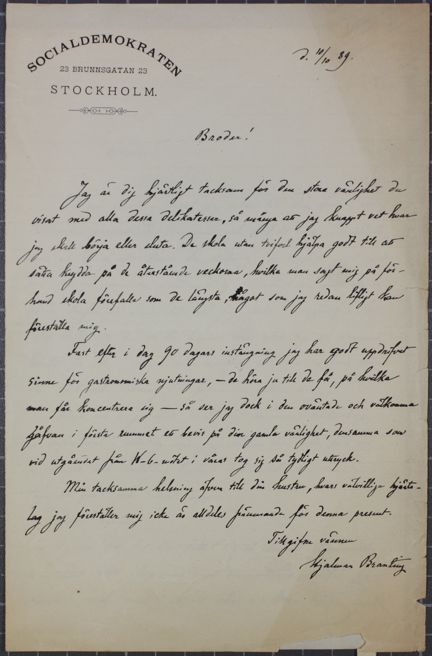 SOCIALDEMOKRATEN
23 BRUNNSGATAN 23
STOCKHOLM.
d. 10/10 89.
Broder!
Jag är dig hjärtligt tacksam för den stora vänlighet du
visat med alla dessa delikatesser, så många att jag knappt vet hvar
jag skall börja eller sluta. De skola utan tvifvel hjälpa godt till att
sätta krydda på de återstående veckorna, hvilka man sagt mig på för-
hand skola förefalla som de längsta, något som jag redan lifligt kan
föreställa mig.
Fast efter i dag 90 dagars instängning jag har godt uppdrifvet
sinne för gastronomiska njutningar, – de höra ju till de få, på hvilka
man får koncentrera sig – så ser jag dock i den oväntade och välkomna
gåfvan i första rummet ett bevis på din gamla vänlighet, densamma som
vid utgåendet från K-b-mötet i våras tog sig så tydligt uttryck.
Min tacksamma helsning äfven till din hustru, hvars välvilliga hjärte-
lag jag föreställer mig icke är alldeles främmande för denna present.
Tillgifne vännen
Hjalmar Branting